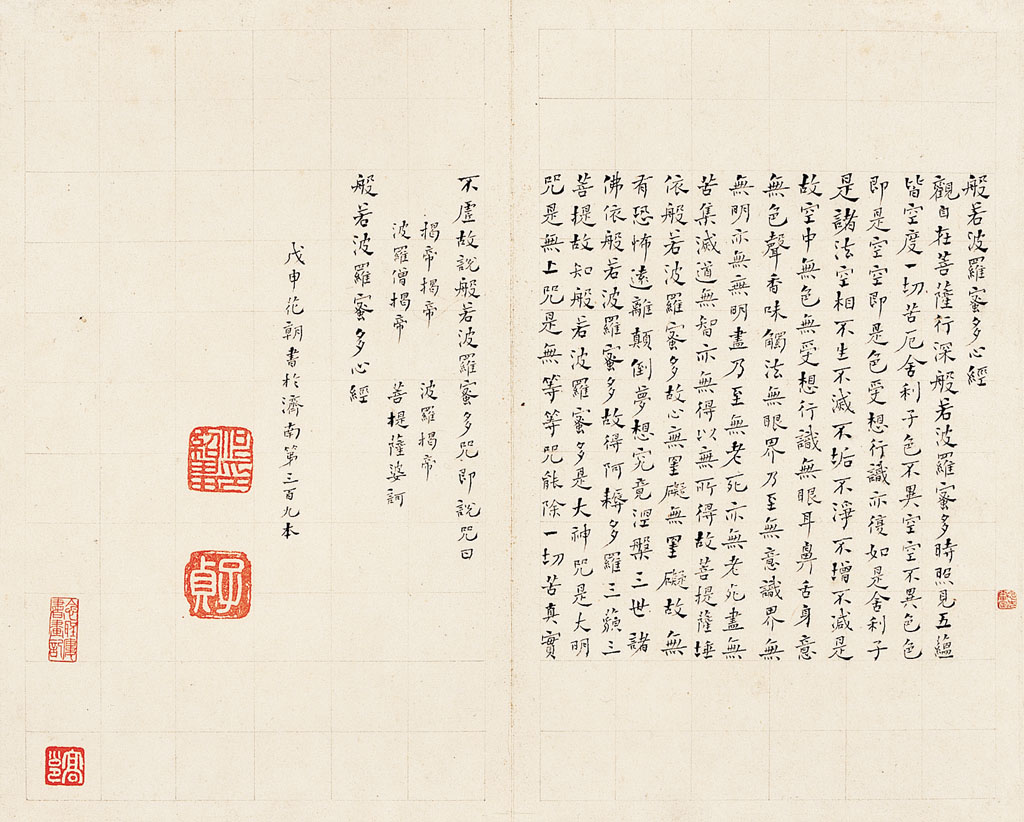 般若波羅蜜多心經
觀自在菩薩行深般若波羅蜜多時照見五蘊
皆空度一切苦厄舍利子色不異空空不異色色
即是空空即是色受想行識亦復如是舍利子
是諸法空相不生不滅不垢不淨不增不減是
故空中無色無受想行識無眼耳鼻舌身意
無色聲香味觸法無眼界乃至無意識界無
無明亦無無明盡乃至無老死亦無老死盡無
苦集滅道無智亦無得以無所得故菩提薩埵
依般若波羅蜜多故心無罣礙無罣礙故無
有恐怖遠離顛倒夢想究竟涅槃三世諸
佛依般若波羅蜜多故得阿耨多羅三藐三
菩提故知般若波羅蜜多是大神咒是大明
咒是無上咒是無等等咒能除一切苦真實
不虛故說般若波羅蜜多咒即說咒曰
揭帝揭帝 波羅揭帝
波羅僧揭帝 菩提薩婆訶
般若波羅蜜多心經
戊申花朝書於濟南第三百九本
子貞
書畫記
高邕